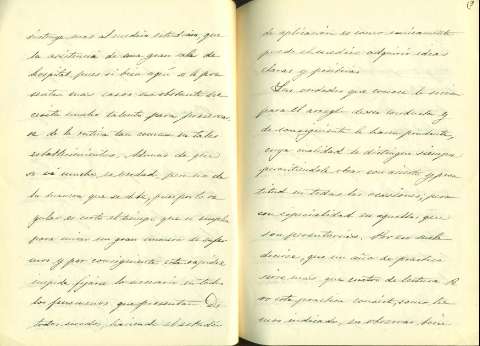 instruya mas al medico estudioso, que
la asistencia de una gran sala de
hospital, pues si bien aqui se le pre
sentan mas casos no obstante ne
cesita mucho talento para preservar
se de la rutina tan comun en tales
establecimientos. Ademas de que
se ve mucho, es verdad, pero no de
la manera que se debe, pues por lo re
gular es corto el tiempo que se emplea
para mirar un gran numero de enfer
mos y por consiguiente esta rapidez
impide fijar la necesaria en todos
los fenomenos que presentan. De
todos modos, haciendo el estudio
de aplicacion es como unicamente
puede el medico adquirir ideas
claras y positivas.
Las verdades que conoce le sirven
para el arreglo de su conducta y
de consiguiente le hacen prudente,
cuya cualidad le distingue siempre
permitiendole obrar con acierto y pron
titud en todas las ocasiones, pero
con especialidad en aquellas que
son perentorias. Por eso suele
decirse, que un año de practica
sirve mas que cientos de lectura. P
or esta practica consiste, como he
mos indicado, en observar bien